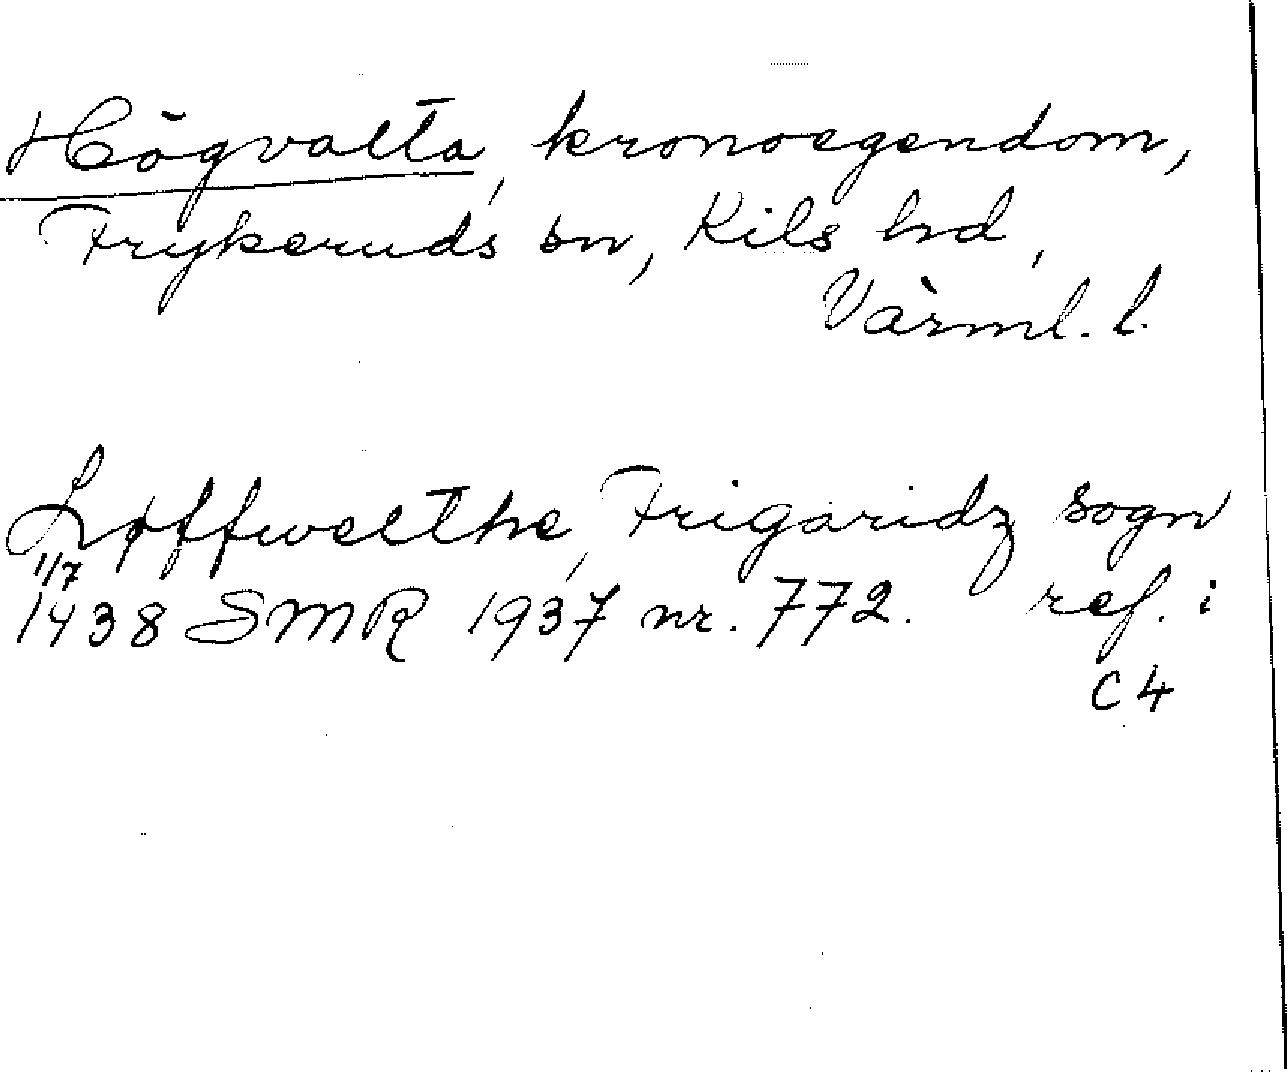 Högvalta, kronoegendom,
Frykeruds sn, Kils hd,
Värml. l.
Løffwelthe, Frigaridz sogn
1/7
1438 SMR 1937 nr. 772. ref. i
C 4